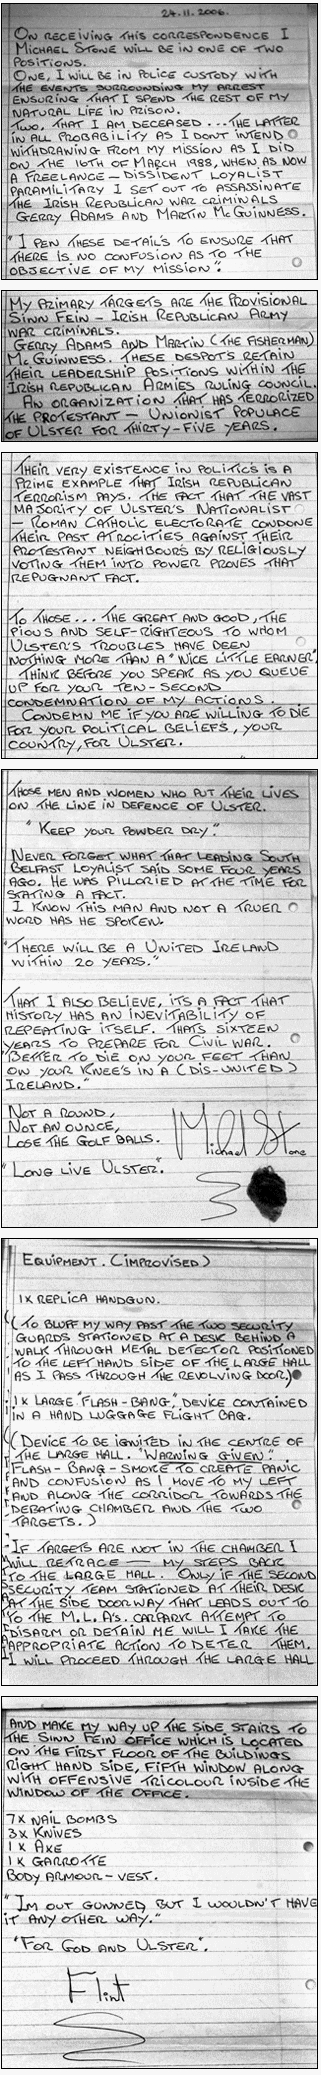 24.11.2006.
ON RECEIVING THIS CORRESPONDENCE I
MICHAEL STONE WILL BE IN ONE OF TWO
POSITIONS.
ONE, I WILL BE IN POLICE CUSTODY WITH
THE EVENTS SURROUNDING MY ARREST
ENSURING THAT I SPEND THE REST OF MY
NATURAL LIFE IN PRISON.
TWO, THAT I AM DECEASED... THE LATTER
IN ALL PROBABILITY AS I DONT INTEND
WITHDRAWING FROM MY MISSION AS I DID
ON THE 16TH OF MARCH 1988, WHEN AS NOW
A FREELANCE - DISSIDENT LOYALIST
PARAMILITARY I SET OUT TO ASSASSINATE
THE IRISH REPUBLICAN WAR CRIMINALS
GERRY ADAMS AND MARTIN MCGUINNESS.
"I PEN THESE DETAIL'S TO ENSURE THAT
THERE IS NO CONFUSION AS TO THE
OBJECTIVE OF MY MISSION".
MY PRIMARY TARGETS ARE THE PROVISIONAL
SINN FEIN - IRISH REPUBLICAN ARMY
WAR CRIMINALS.
GERRY ADAMS AND MARTIN (THE FISHERMAN)
MCGUINNESS. THESE DESPOTS RETAIN
THEIR LEADERSHIP POSITIONS WITHIN THE
IRISH REPUBLICAN ARMIES RULING COUNCIL.
AN ORGANIZATION THAT HAS TERRORIZED
THE PROTESTANT - UNIONIST POPULACE
OF ULSTER FOR THIRTY-FIVE YEARS.
THEIR VERY EXISTENCE IN POLITICS IS A
PRIME EXAMPLE THAT IRISH REPUBLICAN
TERRORISM PAYS. THE FACT THAT THE VAST
MAJORITY OF ULSTER'S NATIONALIST
- ROMAN CATHOLIC ELECTORATE CONDONE
THEIR PAST ATROCITIES AGAINST THEIR
PROTESTANT NEIGHBOURS BY RELIGIOUSLY
VOTING THEM INTO POWER PROVES THAT
REPUGNANT FACT.
TO THOSE... THE GREAT AND GOOD, THE
PIOUS AND SELF-RIGHTEOUS TO WHOM
ULSTER'S TROUBLES HAVE BEEN
NOTHING MORE THAN A "NICE LITTLE EARNER".
THINK BEFORE YOU SPEAK AS YOU QUEUE
UP FOR YOUR TEN-SECOND
CONDEMNATION OF MY ACTIONS.
CONDEMN ME IF YOU ARE WILLING TO DIE
FOR YOUR POLITICAL BELIEFS, YOUR
COUNTRY, FOR ULSTER.
THOSE MEN AND WOMEN WHO PUT THEIR LIVES
ON THE LINE IN DEFENCE OF ULSTER.
"KEEP YOUR POWDER DRY".
NEVER FORGET WHAT THAT LEADING SOUTH
BELFAST LOYALIST SAID SOME FOUR YEARS
AGO. HE WAS PILLORIED AT THE TIME FOR
STATING A FACT.
I KNOW THIS MAN AND NOT A TRUER
WORD HAS HE SPOKEN.
"THERE WILL BE A UNITED IRELAND
WITHIN 20 YEARS."
THAT I ALSO BELIEVE, ITS A FACT THAT
HISTORY HAS AN INEVITABILITY OF
REPEATING ITSELF. THATS SIXTEEN
YEARS TO PREPARE FOR CIVIL WAR.
"BETTER TO DIE ON YOUR FEET THAN
ON YOUR KNEE'S IN A (DIS-UNITED)
IRELAND."
NOT A ROUND,
NOT AN OUNCE,
LOSE THE GOLF BALLS.
Michael Stone
"LONG LIVE ULSTER".
EQUIPMENT. (IMPROVISED)
1X REPLICA HANDGUN.
(TO BLUFF MY WAY PAST THE TWO SECURITY
GUARDS STATIONED AT A DESK BEHIND A
WALK THROUGH METAL DETECTOR POSITIONED
TO THE LEFT HAND SIDE OF THE LARGE HALL
AS I PASS THROUGH THE REVOLVING DOOR.)
1X LARGE "FLASH-BANG", DEVICE CONTAINED
IN A HAND LUGGAGE FLIGHT BAG.
(DEVICE TO BE IGNITED IN THE CENTRE OF
THE LARGE HALL. "WARNING GIVEN".
FLASH-BANG-SMOKE TO CREATE PANIC
AND CONFUSION AS I MOVE TO MY LEFT
AND ALONG THE CORRIDOR TOWARDS THE
DEBATING CHAMBER AND THE TWO
TARGETS.)
-IF TARGETS ARE NOT IN THE CHAMBER I
WILL RETRACE - MY STEPS BACK
TO THE LARGE HALL. ONLY IF THE SECOND
SECURITY TEAM STATIONED AT THEIR DESK
AT THE SIDE DOORWAY THAT LEADS OUT TO
TO THE M.L.A's. CARPARK ATTEMPT TO
DISARM OR DETAIN ME WILL I TAKE THE
APPROPRIATE ACTION TO DETER THEM.
I WILL PROCEED THROUGH THE LARGE HALL
AND MAKE MY WAY UP THE SIDE STAIRS TO
THE SINN FEIN OFFICE WHICH IS LOCATED
ON THE FIRST FLOOR OF THE BUILDINGS
RIGHT HAND SIDE, FIFTH WINDOW ALONG
WITH OFFENSIVE TRICOLOUR INSIDE THE
WINDOW OF THE OFFICE.
7X NAIL BOMBS
3X KNIVES
1X AXE
1X GARROTTE
BODY ARMOUR-VEST.
"IM OUT GUNNED, BUT I WOULDN'T HAVE
IT ANY OTHER WAY."
"FOR GOD AND ULSTER".
Flint